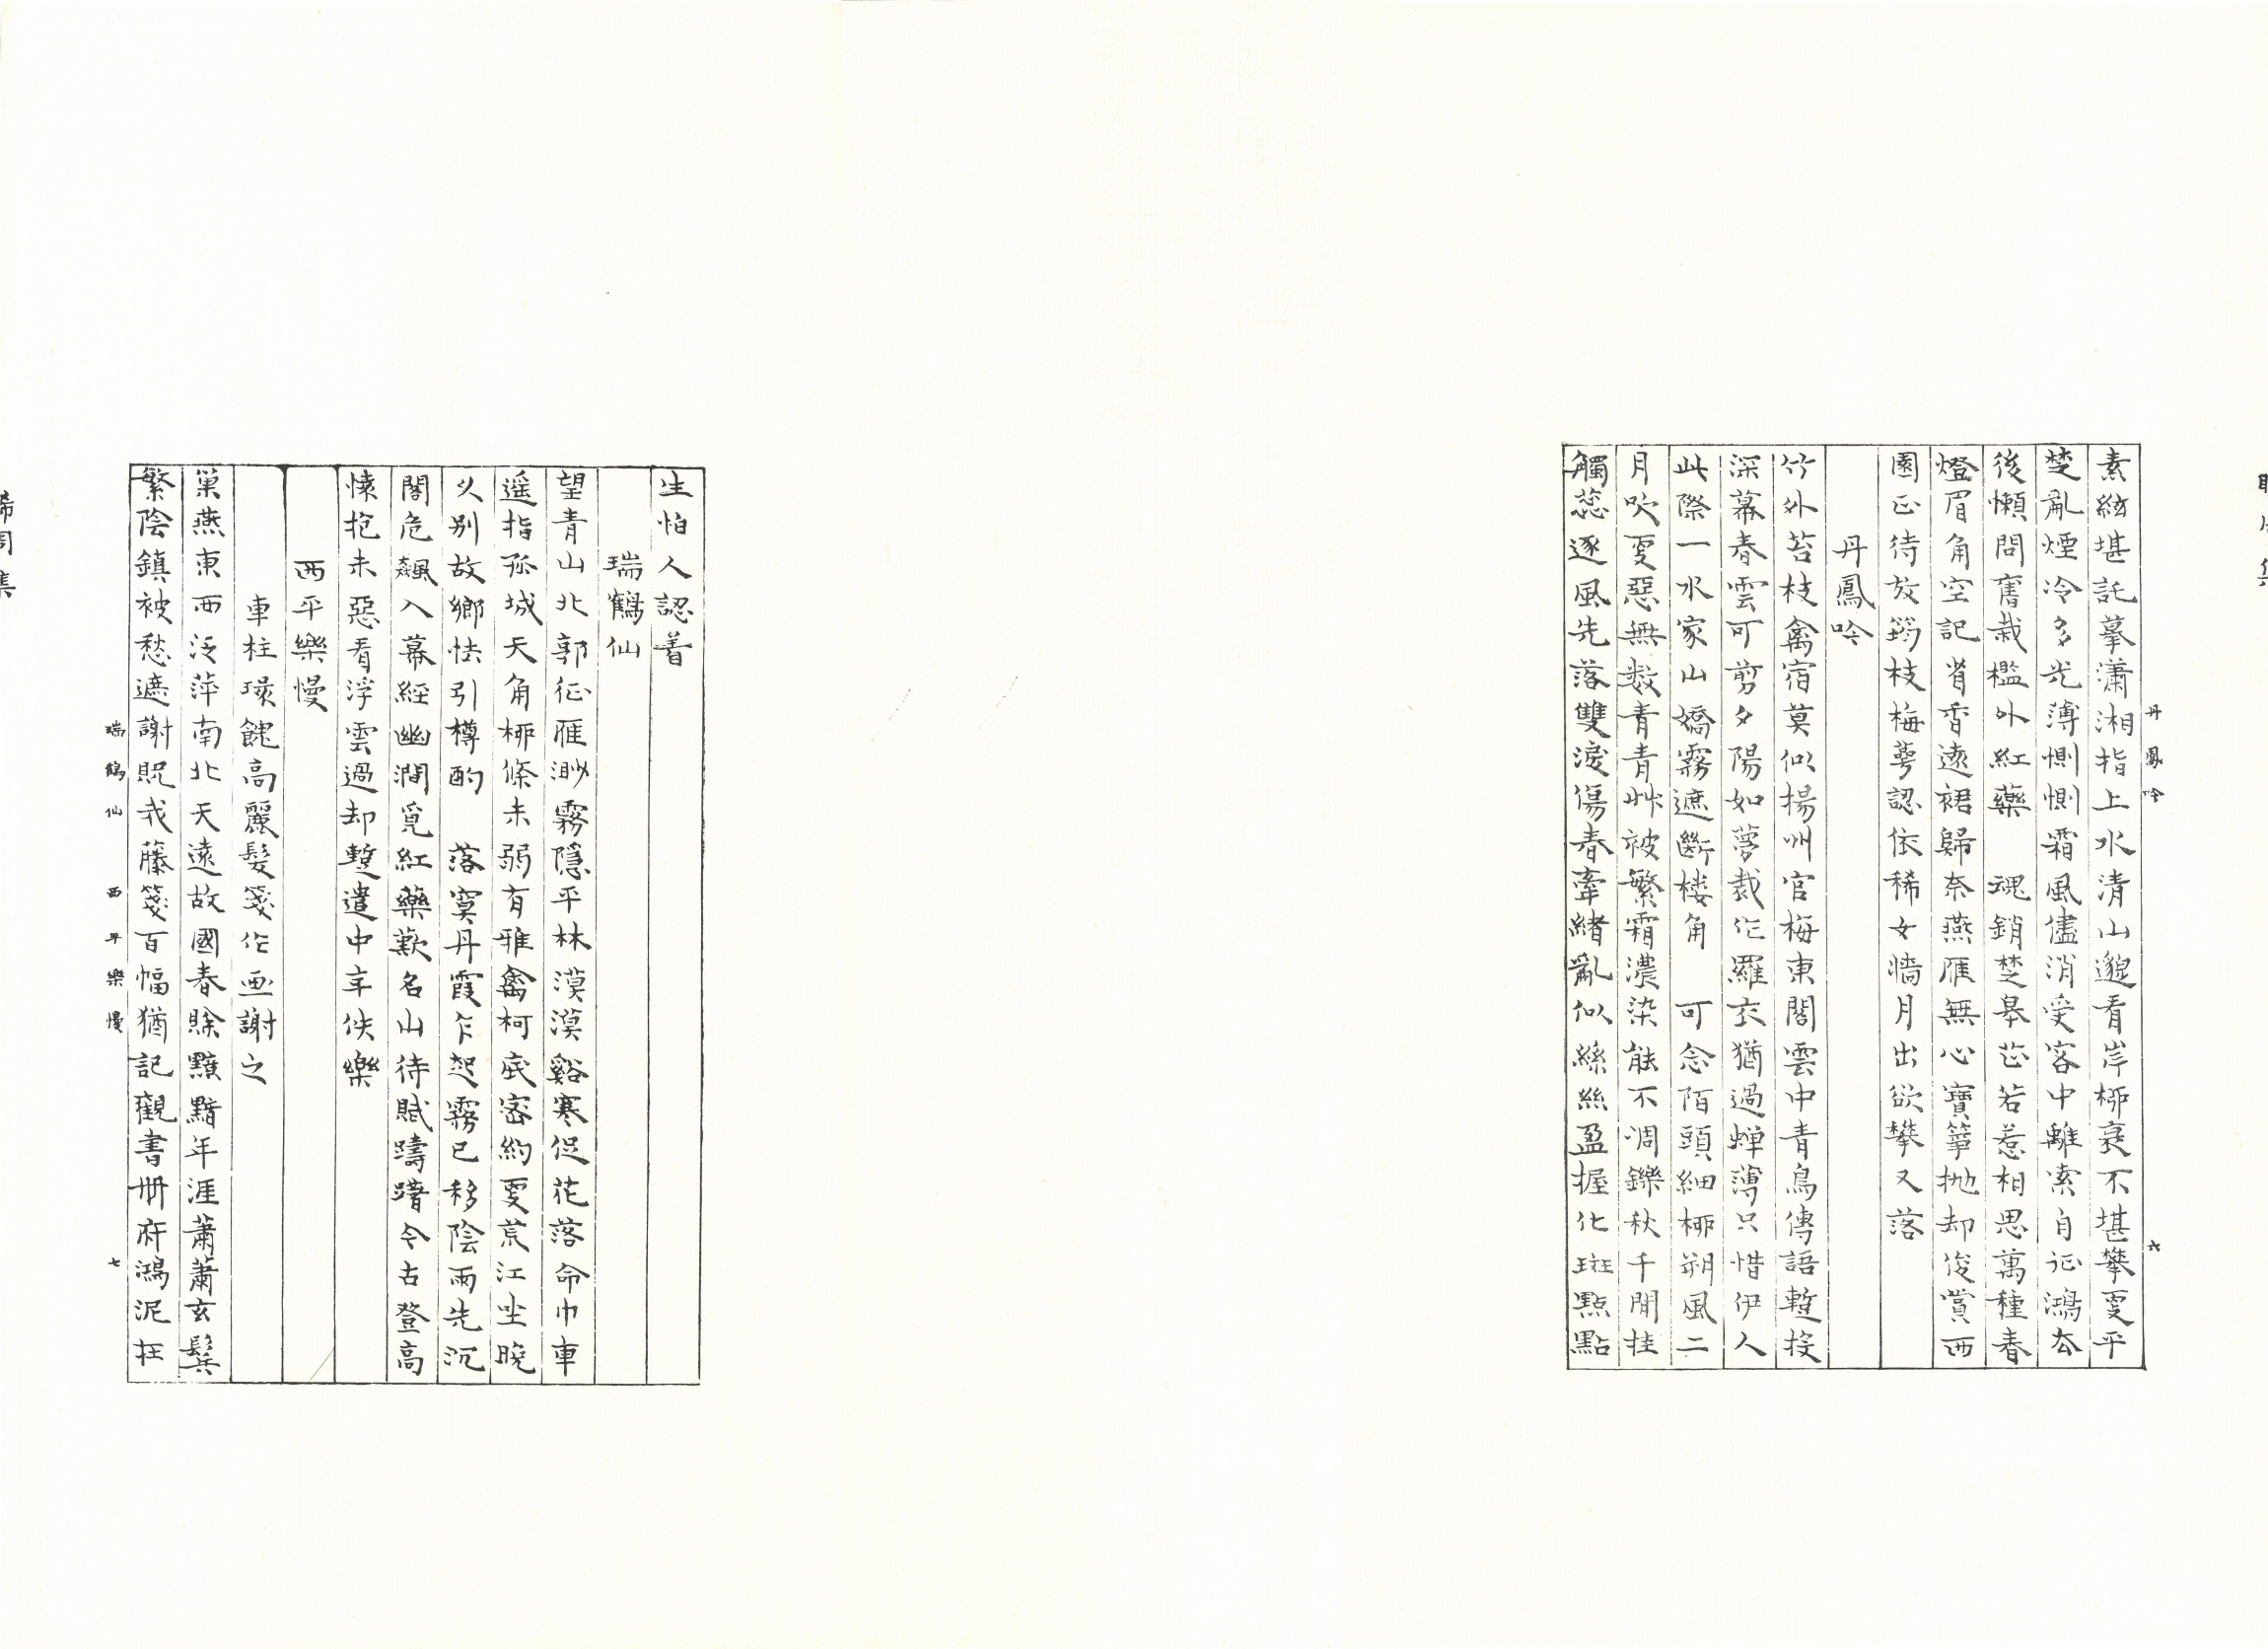 素絃堪託摹瀟湘指上水清山邈看岸柳衰不堪攀更平
楚亂煙冷多光薄惻惻霜風儘消受客中離索自征鴻去
後懶問舊栽檻外紅藥　魂銷楚皋芷若惹相思萬種春
燈眉角空記省香遠裙歸奈燕雁無心寶箏拋却俊賞西
園正待放筠枝梅萼認依稀女牆月出欲攀又落
丹鳳吟
竹外苔枝禽宿莫似揚州官梅東閣雲中青鳥傳語蹔投
深幕春雲可剪夕陽如夢裁作羅衣猶過蟬薄只惜伊人
此際一水家山嬌霧遮斷樓角　可念陌頭細柳朔風二
月吹更惡無數青青艸被繁霜濃染能不凋鑠秋千閒挂
觸蕊逐風先落雙淚傷春牽緒亂似絲絲盈握化斑點點
丹鳳吟
六
生怕人認着
瑞鶴仙
望青山北郭征雁渺霧隱平林漠漠谿寒促花落命巾車
遥指孤城天角柳條未弱有雅禽柯底密約更荒江坐晚
乆别故鄉怯引樽酌　落寞丹霞乍起霧已移陰雨先沉
閣危飆入幕經幽澗覓紅藥歎名山待賦躊躇今古登高
懷抱未惡看浮雲過却蹔遣中年佚樂
西平樂慢
車柱環餽高麗髮箋作画謝之
巢燕東西泛萍南北天遠故國春賒黯黯年涯蕭蕭玄鬢
繁陰鎮被愁遮謝貺我藤箋百幅猶記觀書册府鴻泥在
瑞鶴仙
西平樂慢
七